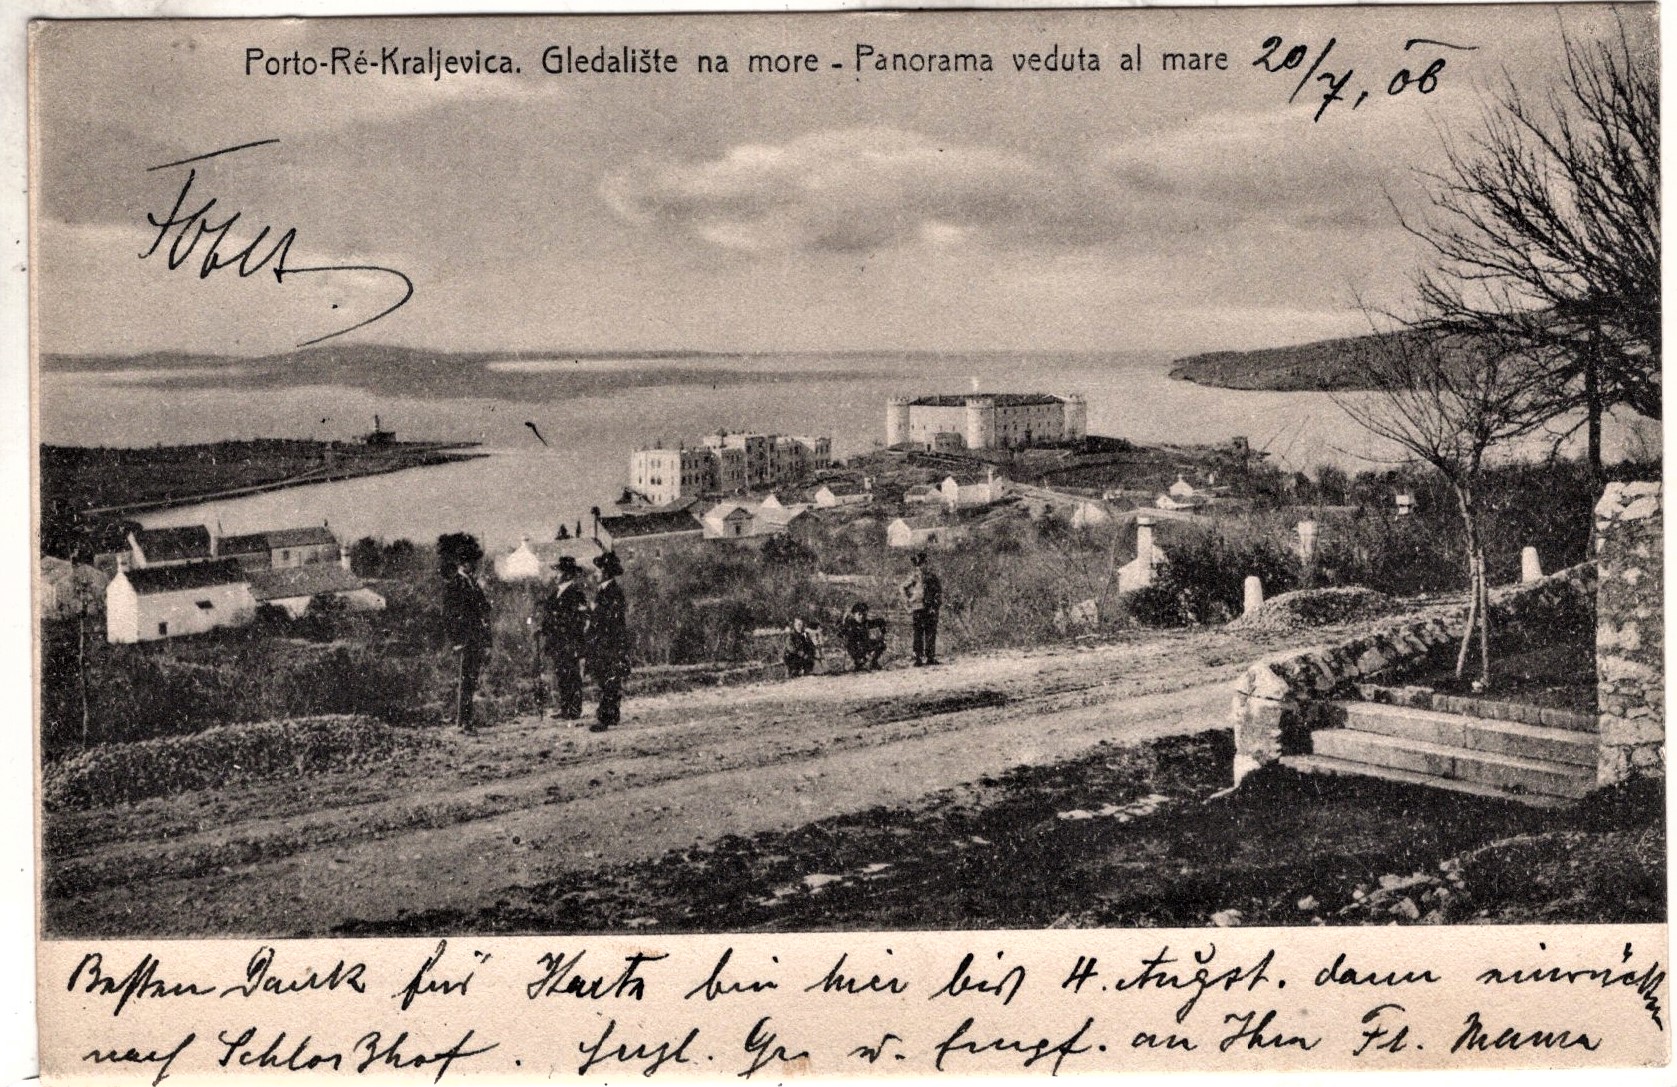 Porto-Ré-Kraljevica. Gledalište na more - Panorama veduta al mare 20/7, 06
Besten Dank für Karte bin hier bis 4. Augst. dann einrücken
nach Schloßhof. Hrzl. Gr. u. Empf. an Ihre Fr. Mama